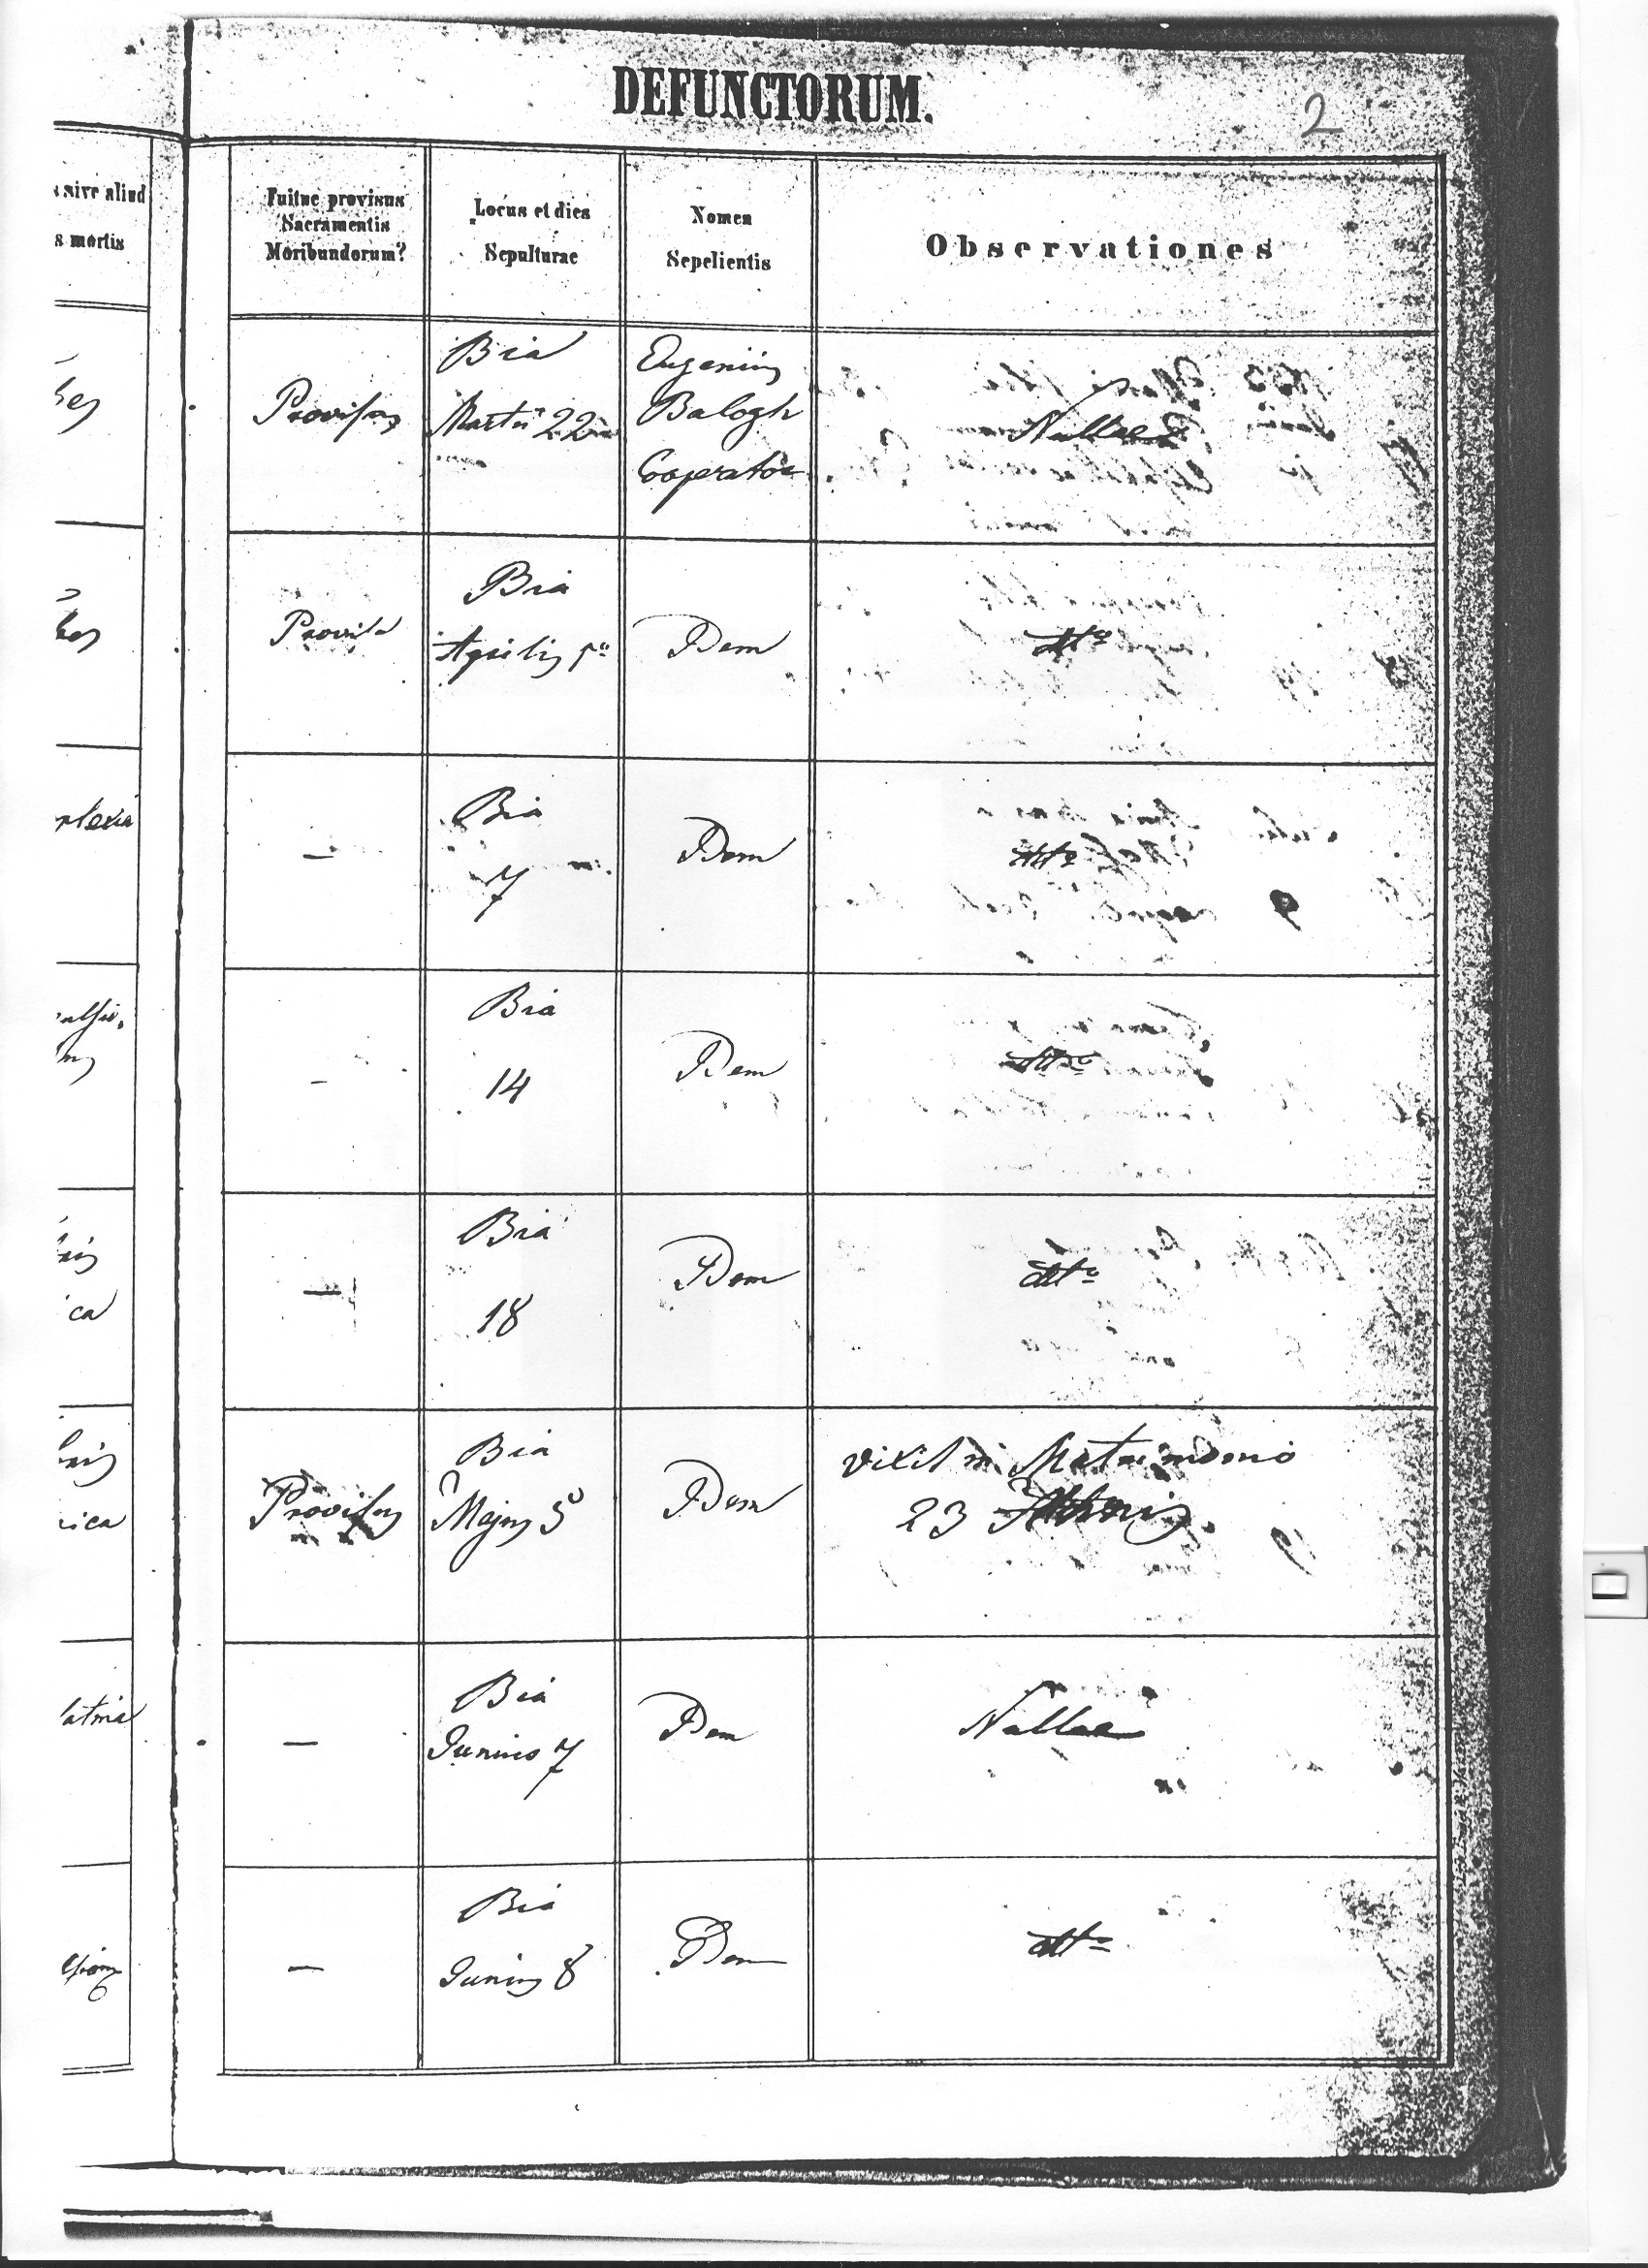 DEFUNCTORUM.
2
sive aliud
s mortis
Fuitne provisus
Sacramentis
Moribundorum?
Locus et dies
Sepulturae
Nomen
Sepelientis
Observationes
Provisus
Bia
Martii 22
Eugenius
Balogh
Cooperator
Nullae
Provisa
Bia
Aprilis 5a
Idem
dtto
plexia
—
Bia
7
Idem
dtto
-
Bia
14
Idem
dtto
ca
—
Bia
18
Idem
dtto
rica
Provisus
Bia
Majus 5
Idem
vixit in Matrimonio
23 Annis
latria
—
Bia
Junius 7
Idem
Nullae
—
Bia
Junius 8
Idem
dtto